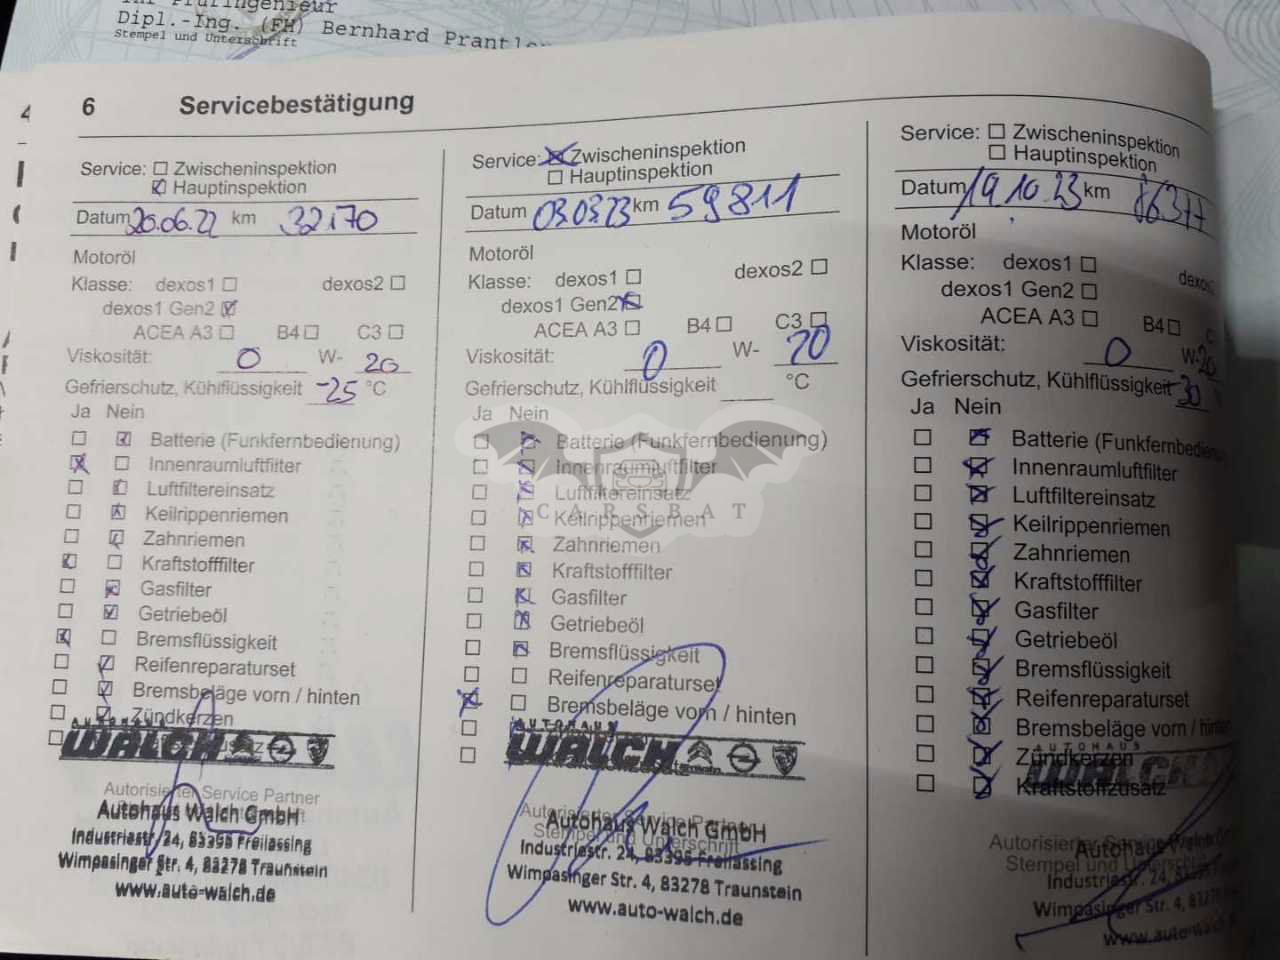 Ihr Prüfingenieur
Dipl.-Ing. (FH) Bernhard Prantler
Stempel und Unterschrift
4
6 Servicebestätigung
Service: Zwischeninspektion
Hauptinspektion
Datum 20.06.22 km 32170
Motoröl
Klasse: dexos1 dexos2
dexos1 Gen2
ACEA A3 B4 C3
Viskosität: 0 W- 20
Gefrierschutz, Kühlflüssigkeit -25 °C
Ja Nein
Batterie (Funkfernbedienung)
Innenraumluftfilter
Luftfiltereinsatz
Keilrippenriemen
Zahnriemen
Kraftstofffilter
Gasfilter
Getriebeöl
Bremsflüssigkeit
Reifenreparaturset
Bremsbeläge vorn / hinten
Zündkerzen
AUTOHAUS
WALCH
Autorisierter Service Partner
Autohaus Walch GmbH
Industriestr. 24, 83395 Freilassing
Wimpasinger Str. 4, 83278 Traunstein
www.auto-walch.de
Service: Zwischeninspektion
Hauptinspektion
Datum 03.03.23 km 59811
Motoröl
Klasse: dexos1 dexos2
dexos1 Gen2
ACEA A3 B4 C3
Viskosität: 0 W- 20
Gefrierschutz, Kühlflüssigkeit °C
Ja Nein
Batterie (Funkfernbedienung)
Innenraumluftfilter
Luftfiltereinsatz
Keilrippenriemen
Zahnriemen
Kraftstofffilter
Gasfilter
Getriebeöl
Bremsflüssigkeit
Reifenreparaturset
Bremsbeläge vorn / hinten
AUTOHAUS
WALCH
Kraftstoffzusatz
Autorisierter Service Partner
Stempel und Unterschrift
Autohaus Walch GmbH
Industriestr. 24, 83395 Freilassing
Wimpasinger Str. 4, 83278 Traunstein
www.auto-walch.de
Service: Zwischeninspektion
Hauptinspektion
Datum 19.10.23 km
Motoröl
Klasse: dexos1 dexos2
dexos1 Gen2
ACEA A3 B4 C
Viskosität: 0 W- 20
Gefrierschutz, Kühlflüssigkeit 30
Ja Nein
Batterie (Funkfernbedienung
Innenraumluftfilter
Luftfiltereinsatz
Keilrippenriemen
Zahnriemen
Kraftstofffilter
Gasfilter
Getriebeöl
Bremsflüssigkeit
Reifenreparaturset
Bremsbeläge vorn / hinten
Zündkerzen
Kraftstoffzusatz
AUTOHAUS
WALCH
Autorisierter Service
Stempel und Unterschrift
Autohaus
Industriestr. 24,
Wimpasinger Str. 4,
www.auto-walch.de
CARSBAT